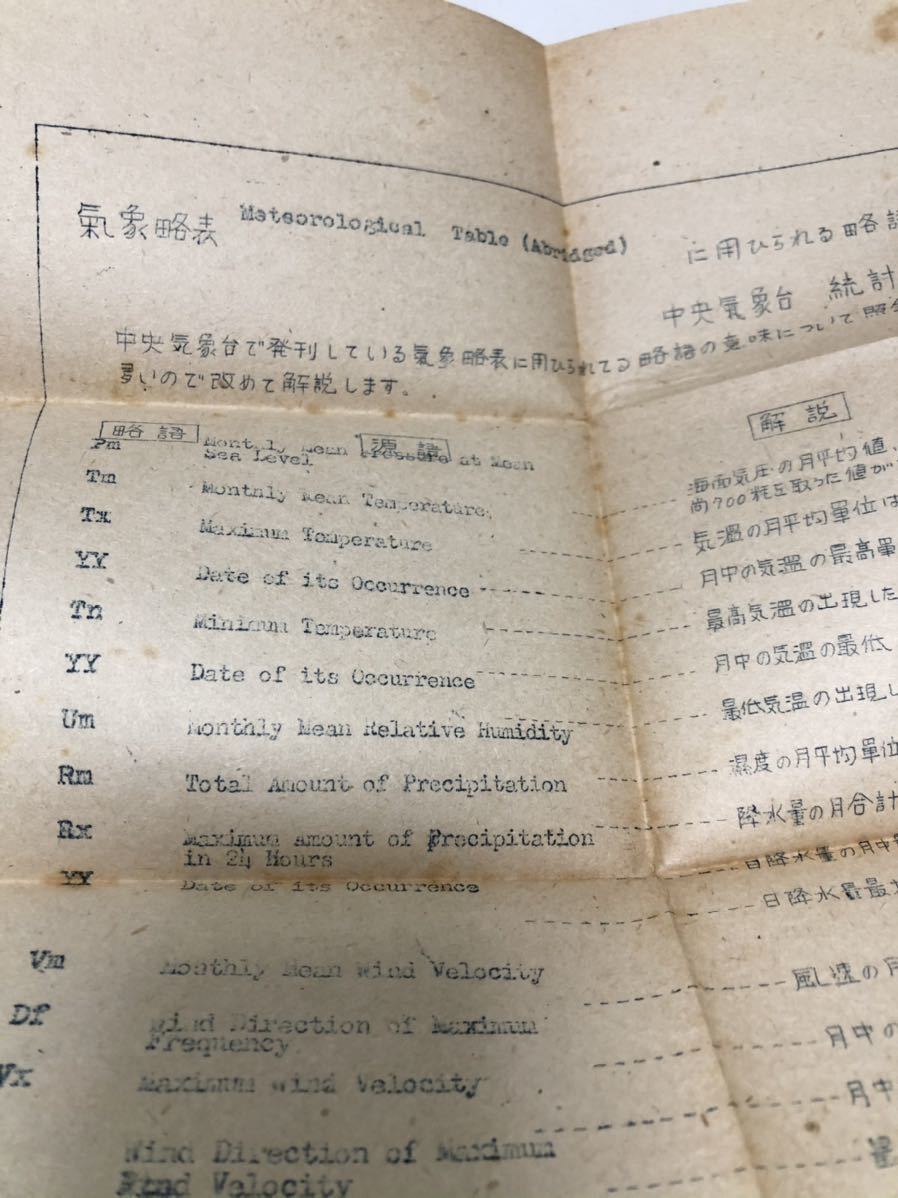 氣象略表 Meteorological Table (Abridged) に用ひられる略語
中央氣象台 統計
中央気象台で発刊している氣象略表に用ひられてる略語の意味について照会
多いので改めて解説します。
略語 源語 解説
Pm Monthly Mean Pressure at Mean
Sea Level 海面気圧の月平均値、
尚700粍を取った値が
Tm Monthly Mean Temperature 気温の月平均單位は
Tx Maximum Temperature 月中の気温の最高單
YY Date of its Occurrence 最高気温の出現した
Tn Minimum Temperature 月中の気温の最低、
YY Date of its Occurrence 最低気温の出現し
Um Monthly Mean Relative Humidity 濕度の月平均單位
Rm Total Amount of Precipitation 降水量の月合計
Rx Maximum Amount of Precipitation
in 24 Hours 日降水量の月中
YY Date of its Occurrence 日降水量最
Vm Monthly Mean Wind Velocity 風速の月
Df Wind Direction of Maximum
Frequency 月中の
Vx Maximum Wind Velocity 月中
Wind Direction of Maximum
Wind Velocity